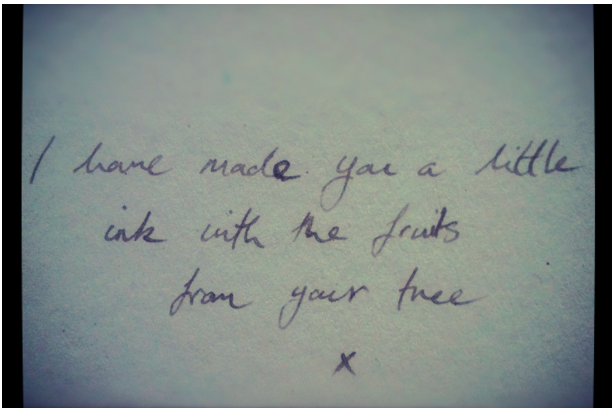 I have made you a little
ink with the fruits
from your tree
x